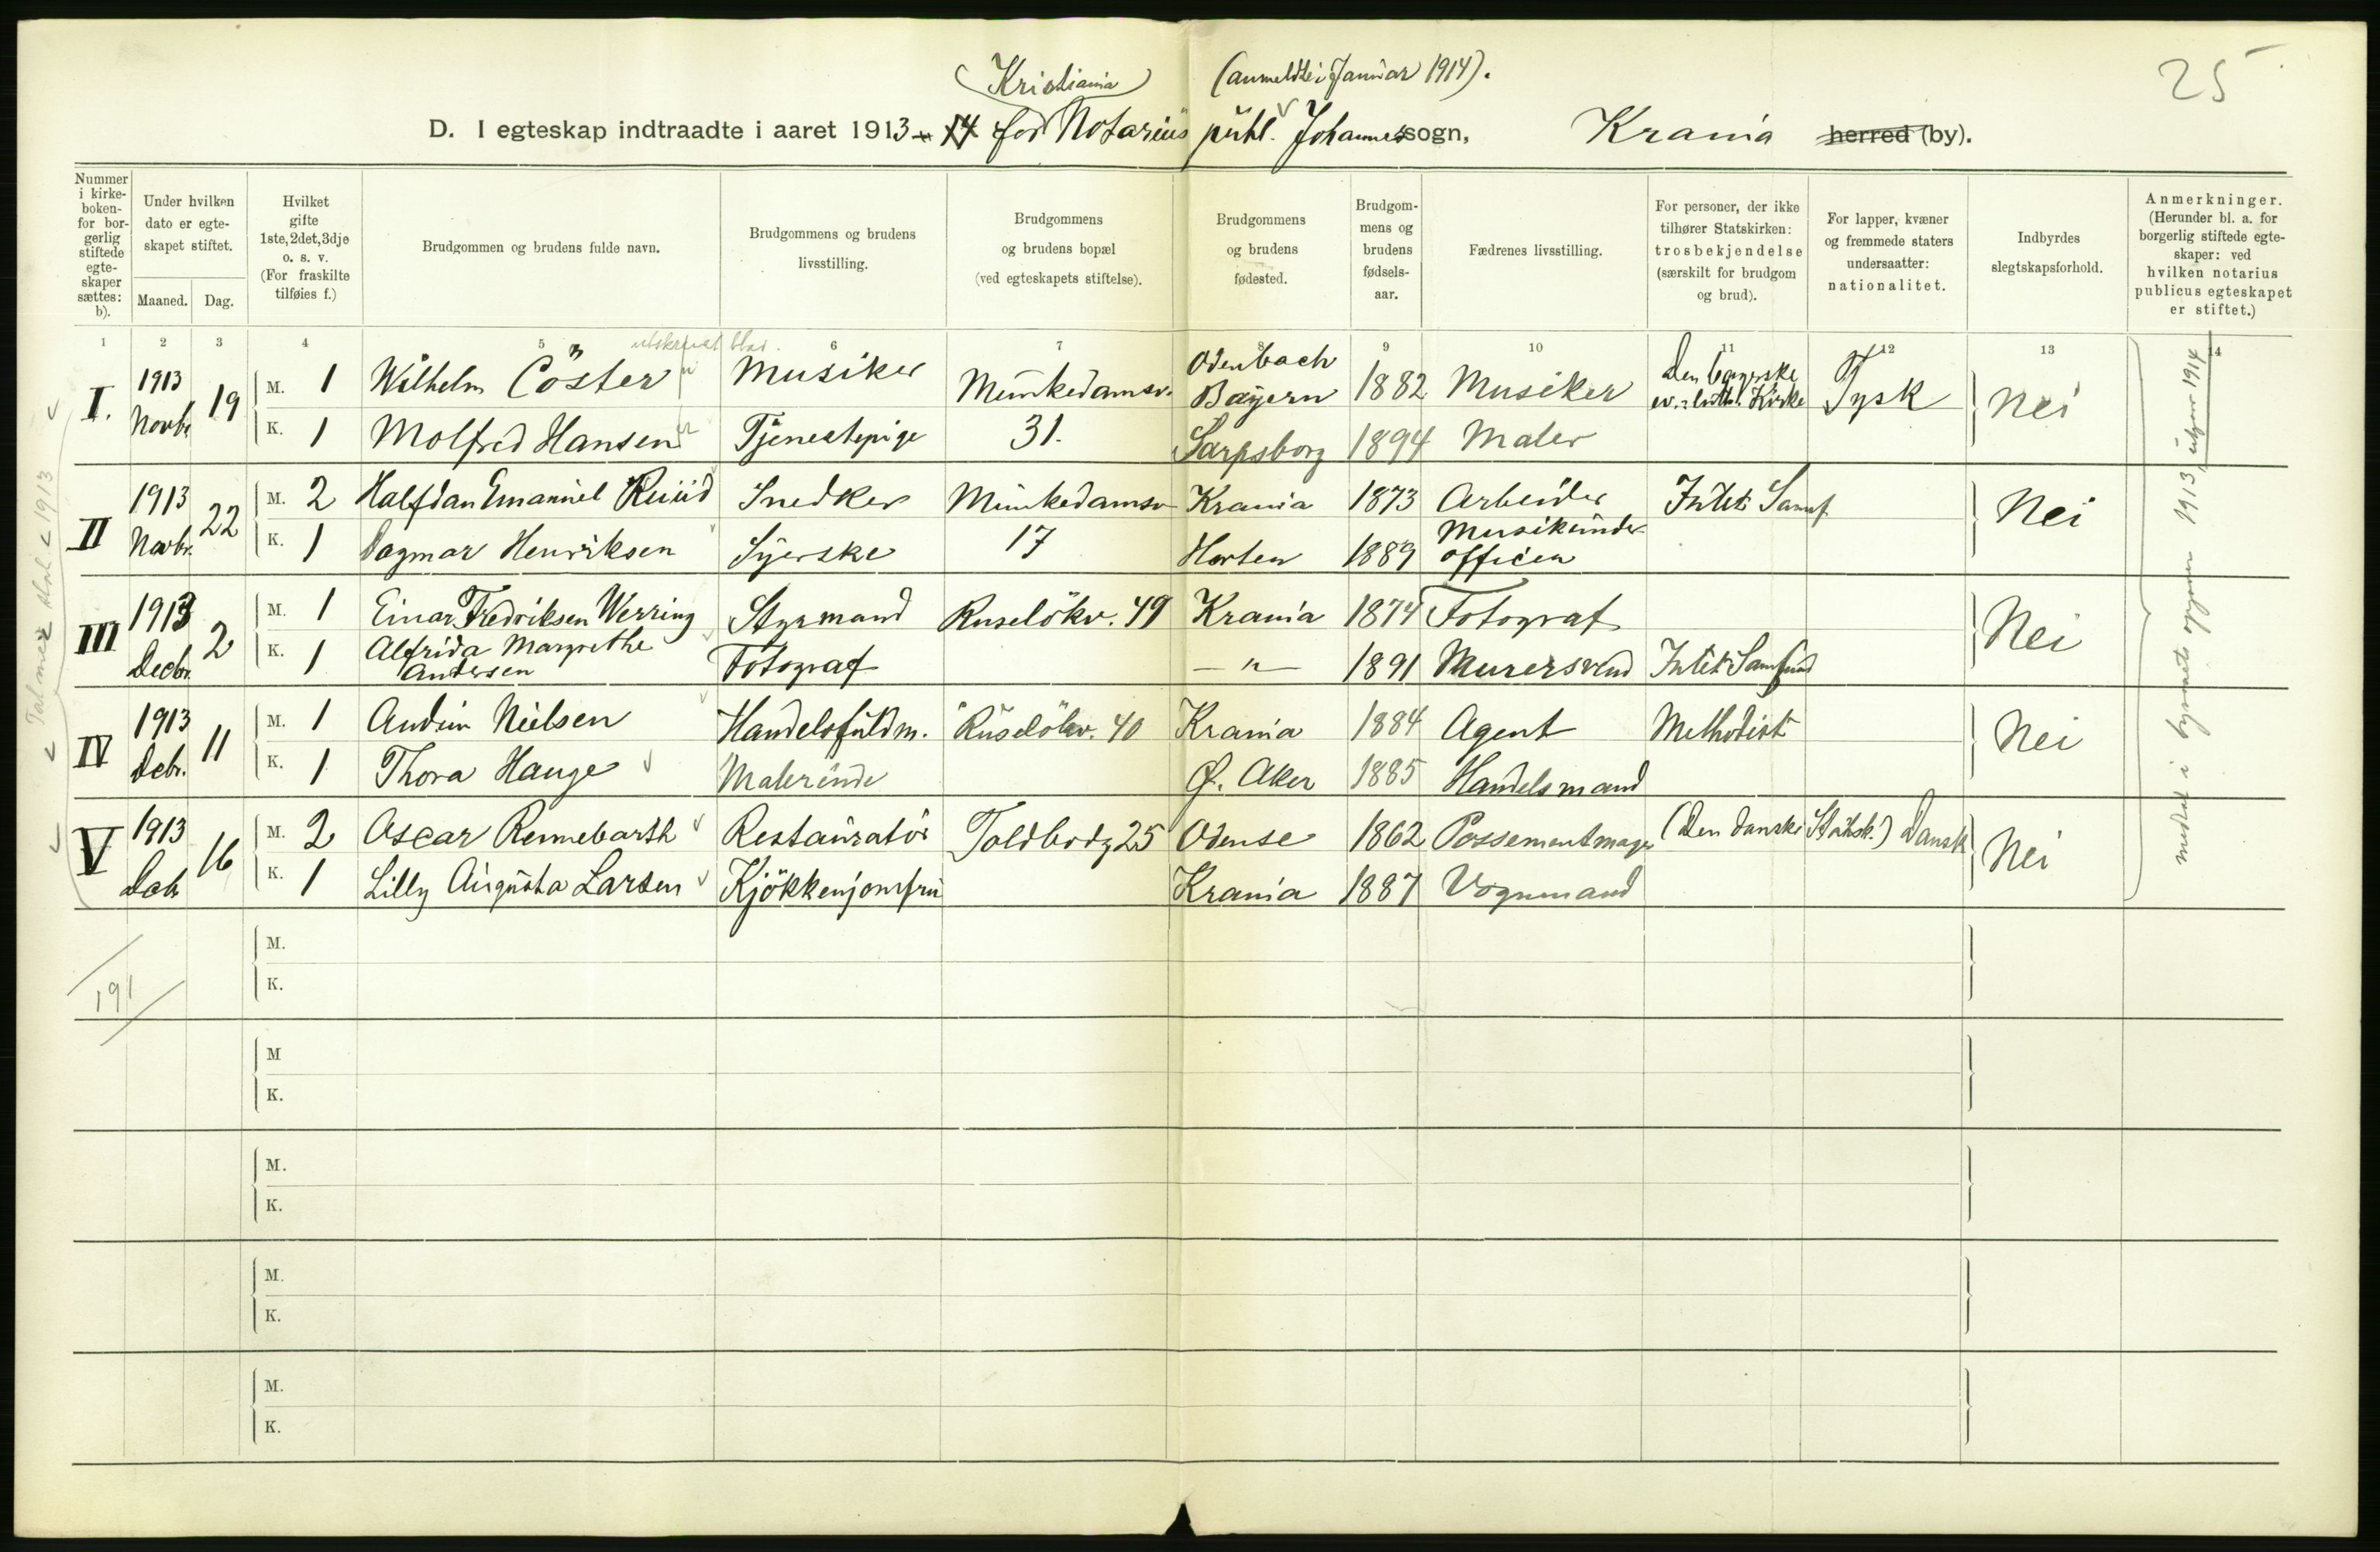 (Kristiania) (anmeldte i Januar 1914). 25
D. I egteskap indtraadte i aaret 1913 - 14 for Notarius publ. Johannes sogn, Krania herred (by).
Nummer i kirkeboken- for borgerlig stiftede egteskaper sættes: b).
Under hvilken dato er egteskapet stiftet.
Maaned. Dag.
Hvilket gifte 1ste, 2det, 3dje o. s. v. (For fraskilte tilføies f.)
Brudgommen og brudens fulde navn.
Brudgommens og brudens livsstilling.
Brudgommens og brudens bopæl (ved egteskapets stiftelse).
Brudgommens og brudens fødested.
Brudgommens og brudens fødselsaar.
Fædrenes livsstilling.
For personer, der ikke tilhører Statskirken: trosbekjendelse (særskilt for brudgom og brud).
For lapper, kvæner og fremmede staters undersaatter: nationalitet.
Indbyrdes slegtskapsforhold.
Anmerkninger. (Herunder bl. a. for borgerlig stiftede egteskaper: ved hvilken notarius publicus egteskapet er stiftet.)
1 2 3 4 5 6 7 8 9 10 11 12 13 14
I. 1913 Novbr 19 M. 1 Wilhelm Cöster Musiker Munkedamsv. Odenbach Bayern 1882 Musiker Den bayerske ev.-luth. Kirke Tysk Nei
K. 1 Molfred Hansen Tjenestepige 31. Sarpsborg 1894 Maler
II 1913 Novbr. 22 M. 2 Halfdan Emanuel Ruud Snedker Munkedamsv Krania 1873 Arbeider Intet Samf Nei
K. 1 Dagmar Henriksen Syerske 17 Horten 1889 Musikunderofficer
III 1913 Decbr. 2 M. 1 Einar Fredriksen Werring Styrmand Ruselökv. 49 Krania 1874 Fotograf Nei
K. 1 Alfrida Margrethe Andersen Fotograf — " — 1891 Murersvend Intet Samfund
IV 1913 Debr. 11 M. 1 Audun Nielsen Handelsfuldm. Ruselökv. 40 Krania 1884 Agent Methodist Nei
K. 1 Thora Hauge Malerinde Ø. Aker 1885 Handelsmand
V 1913 Deb 16 M. 2 Oscar Rennebarth Restauratör Toldbodg 25 Odense 1862 Possementmager (Den danske Statsk.) Dansk Nei
K. 1 Lilly Augusta Larsen Kjökkenjomfru Krania 1887 Vognmand
191
M.
K.
M
K.
M.
K.
M.
K.
M.
K.